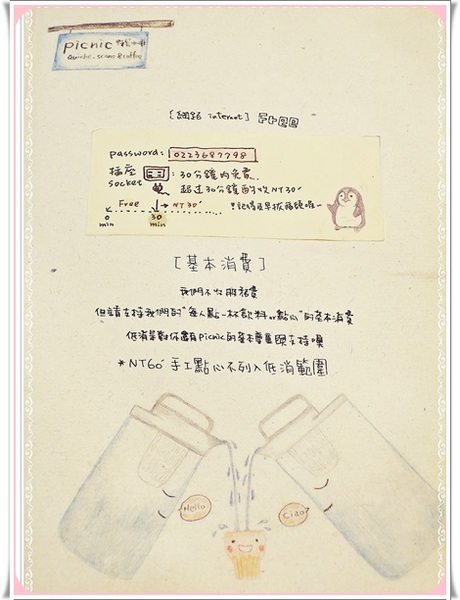 picnic 野餐咖啡
Quiche, scone & coffee
[網路 internet] Free
password: 0223687798
插座 : 30分鐘內免費.
socket 超過30分鐘酌收NT30'
Free → NT30' !記得及早拔插頭唷~
0 min 30 min
[基本消費]
我們不收服務費
但請支持我們的"每人點一杯飲料or點心"的基本消費
低消是對你還有picnic的基本尊重與支持噢
*NT60' 手工點心不列入低消範圍
Hello
Ciao